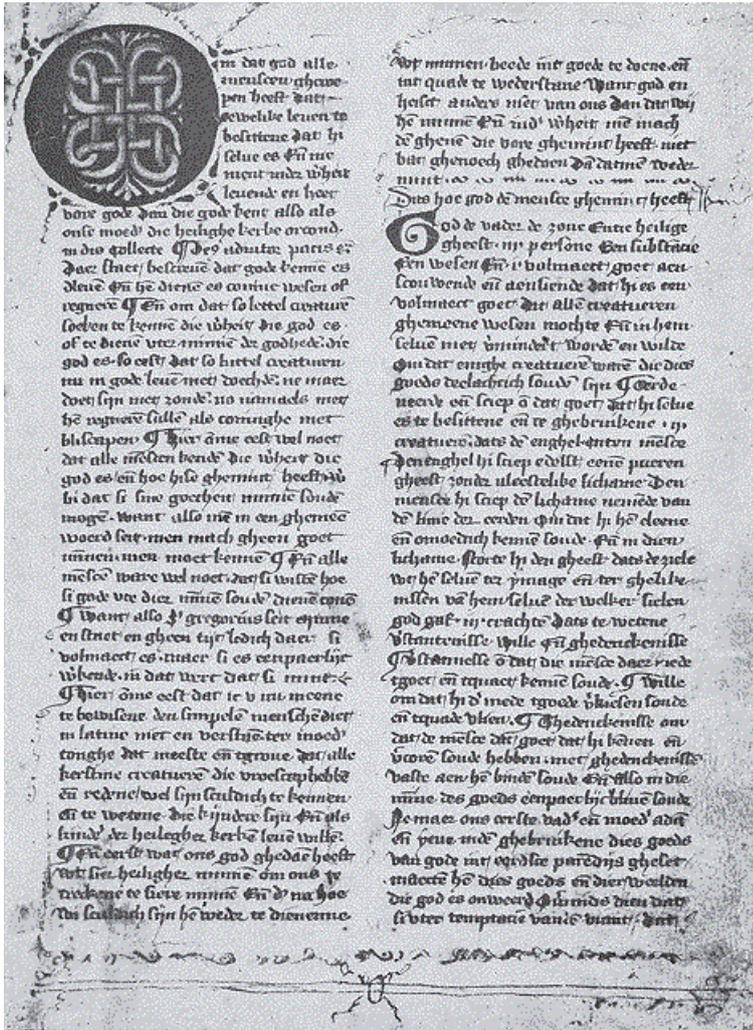 Om dat god alle
menscen ghesce-
pen heeft dat
eewelike leuen te
besittene dat hi
selue es En̄ nie
ment inder wh̄eit
leuende en heet
vore gode dan die gode kent also als
onse moed' die heilighe kerke orcond
in die Collecte ¶ De9 pacis
daer staet bescreuen dat gode kennē es
dleuē En̄ hē dienē es coninc wesen of
regnerē ¶ En̄ om dat so lettel creaturē
soeken te kennē die wh̄eit die god es
of te dienē vter minnē der godheđ die
god es so eest dat so luttel creaturen
nu in gode leuē met doechdē ne maer
doet sijn met zondē no namaels met
hē regnerē sullē als coninghe met
bliscapen ¶ Hier ōme eest wel noet
dat alle mēscen kendē die wh̄eit die
god es en̄ hoe hise ghemint heeft
bi dat si sine goetheit minnē soudē
mogē want also mē in een ghemeē
woerd seit men mach gheen goet
minnen men moet kennē ¶ En̄ alle
mēscē ware wel noet dat si wistē hoe
si gode vte dier minnē soudē dienē
¶ Want also gregorius seit minne
en staet en gheen tijt ledich daer si
volmaect es maer si es eenpaerlijc
in dat wert dat si mint
¶ Hier ōme eest dat ic v nu meene
te bewisene den simpelē menschē diet
in latine niet en verstaen ter moed'
tonghe dat meeste en̄ tgroue dat alle
kerstine creaturē die vroescap hebbē
en̄ redene wel sijn sculdich te kennen
en̄ te wetene die kijndere sijn En̄ als
kindr' der heilegher kerkē leuē willē
¶ En̄ eerst wat ons god ghedaē heeft
wt sier heiligher minnen om ons te
treckene te siere minnē En̄ d' na hoe
wi sculdich sijn hē weder te dienenne
wt minnen beede int goede te doene en̄
int quade te wederstane Want god en
heist anders niet van ons dan dat wij
hē minnē En̄ wh̄eit mē mach
dē ghenē die vore ghemint heeft niet
bat ghenoech ghedoen Dā datmē weder
mint
Dits hoe god de mensce ghemint heeft
God de vader de zone Entie heilige
gheest .iij. persone Een substancie
Een wesen En̄ .i. volmaect goet aen
scouwende en̄ aensiende dat hi es een
volmaect goet dat allē creatueren
ghemeene wesen mochte En̄ in hem
seluē niet v̄mindert wordē en wilde
Om dat enighe creatuerē warē die dies
goeds deelachtich soudē sijn ¶ Eerde
neerde en̄ sciep ō dat goet dat hi selue
es te besittene en̄ te ghebrukene .ij.
creatuerē dats de enghel entien mēsce
Den enghel hi sciep edelst eenē pueren
gheest zonder vleescelike lichame Den
mensche hi sciep dē lichame nemēde van
dē lime der eerden Om dat hi hē cleene
en̄ omoedich kennē soude En̄ in dien
lichame storte hi den gheest dats de ziele
wt hē seluē ter ymage en̄ ter ghelike
nissen vā hem seluē der welker sielen
god gaf .iij. crachte Dats te wetene
v̄stantenisse wille En̄ ghedenckenisse
¶ V̄stannesse ō dat die mēsce daer mede
tgoet en̄ tquaet kennē soude ¶ Wille
om dat hi d' mede tgoede v̄kiesen soude
en̄ tquade vlien ¶ Ghedenckenisse om
dat de mēsce dat goet dat hi kenen en̄
v̄corē soude hebben met ghedenckenisse
vaste aen hē bindē soude En̄ also in die
minne des goeds eenpaerlijc bliuē soude
Ne maer ons eerste vad' en̄ moed' adā
en̄ yeue indē ghebrukene dies goeds
van gode int eerdsche paredijs gheset
maecte hē dies goeds en̄ dier weelden
die god es onweerd Ouermids dien dat
si vter temptacie vans viant dat